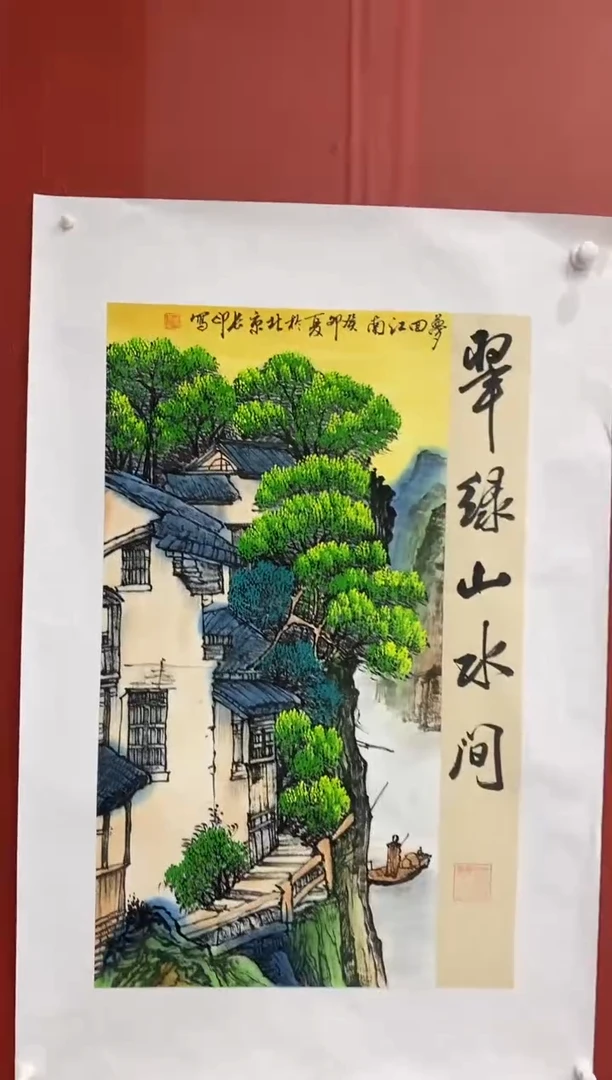 翠绿山水间
梦回江南癸卯夏於北京长写